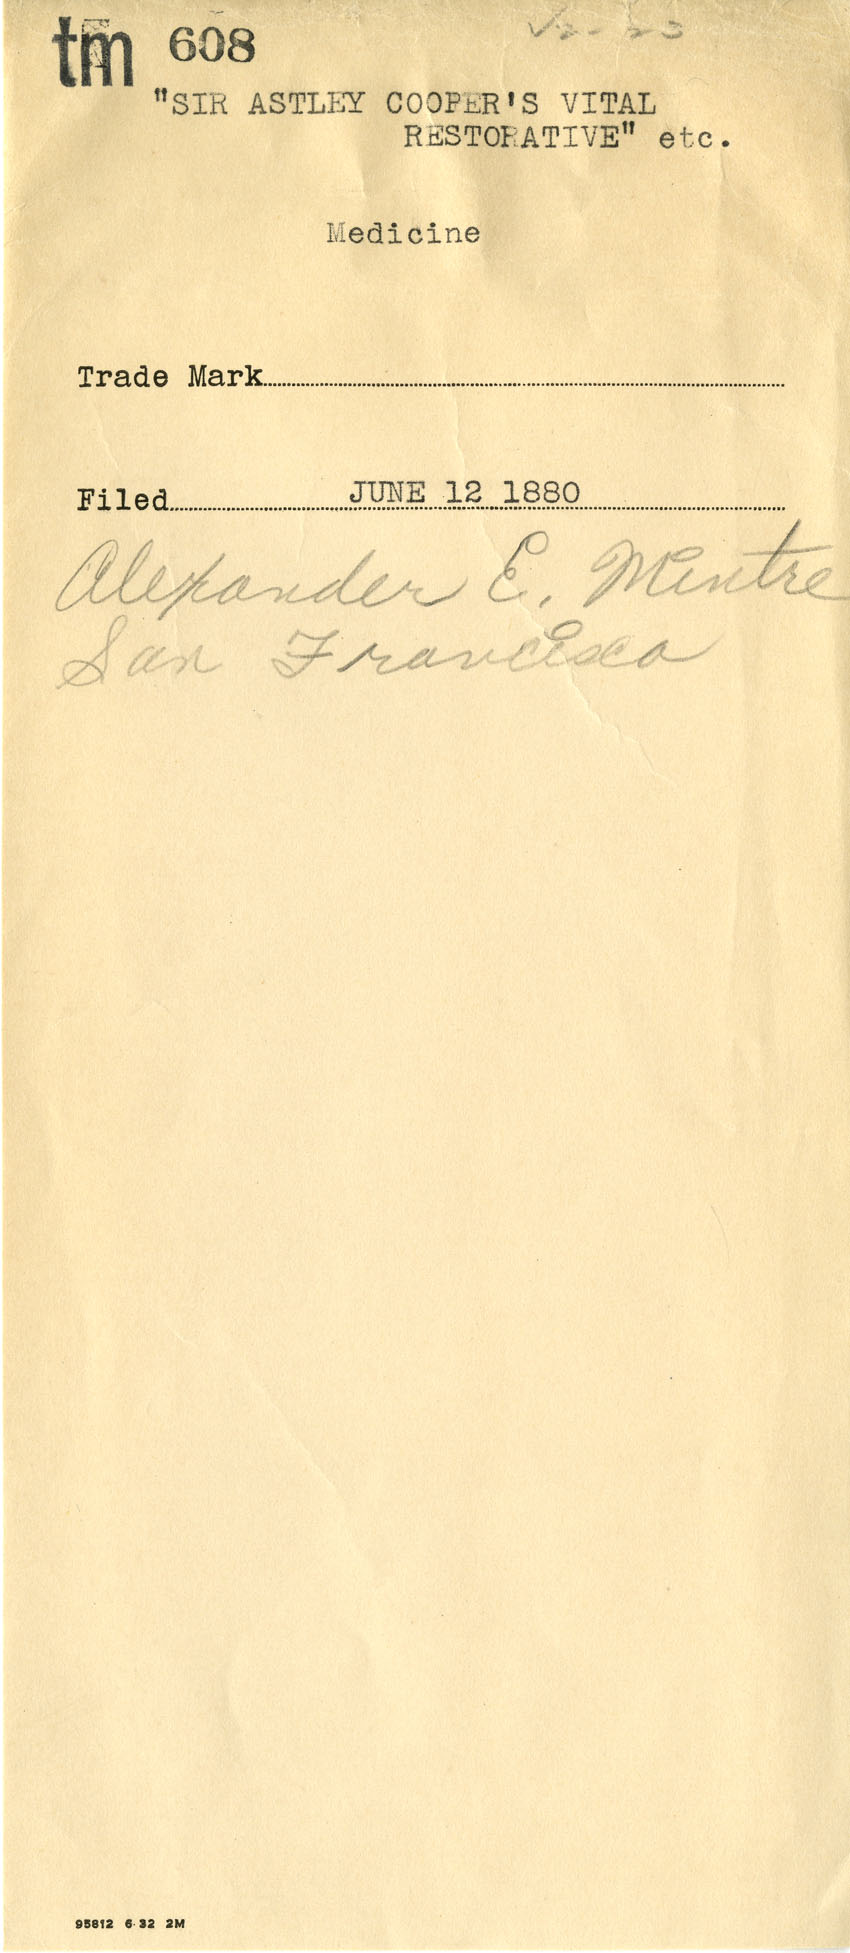 tm 608
"SIR ASTLEY COOPER'S VITAL
RESTORATIVE" etc.
Medicine
Trade Mark
Filed JUNE 12 1880
Alexander E. Mintre
San Francisco
95812 6-32 2M